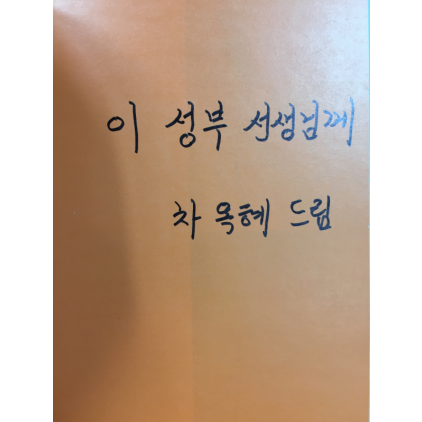 이 성부 선생님께
차 옥혜 드림